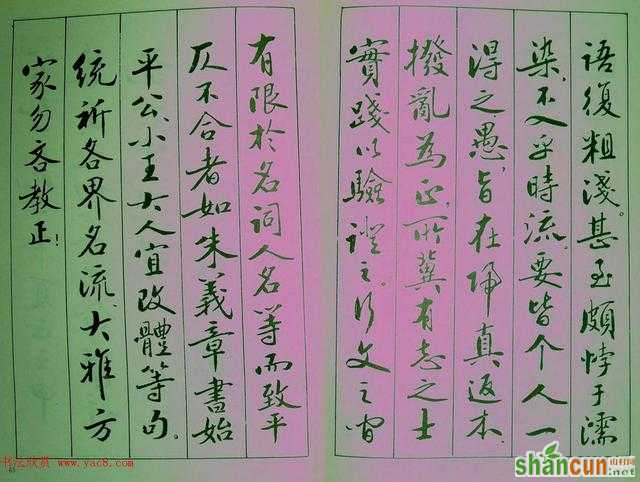 语復粗淺。甚至頗悖于濡
染,不入乎時流,要皆个人一
得之愚,旨在歸真返本,
撥亂為正,所冀有志之士
實踐以驗證之。行文之間
有限於名詞人名等而致平
仄不合者如朱義章書始
平公、小王大人宜改體等句。
统祈各界名流、大雅方
家勿吝教正!
书法欣赏 www.yac8.com
shancun
山村网
.net